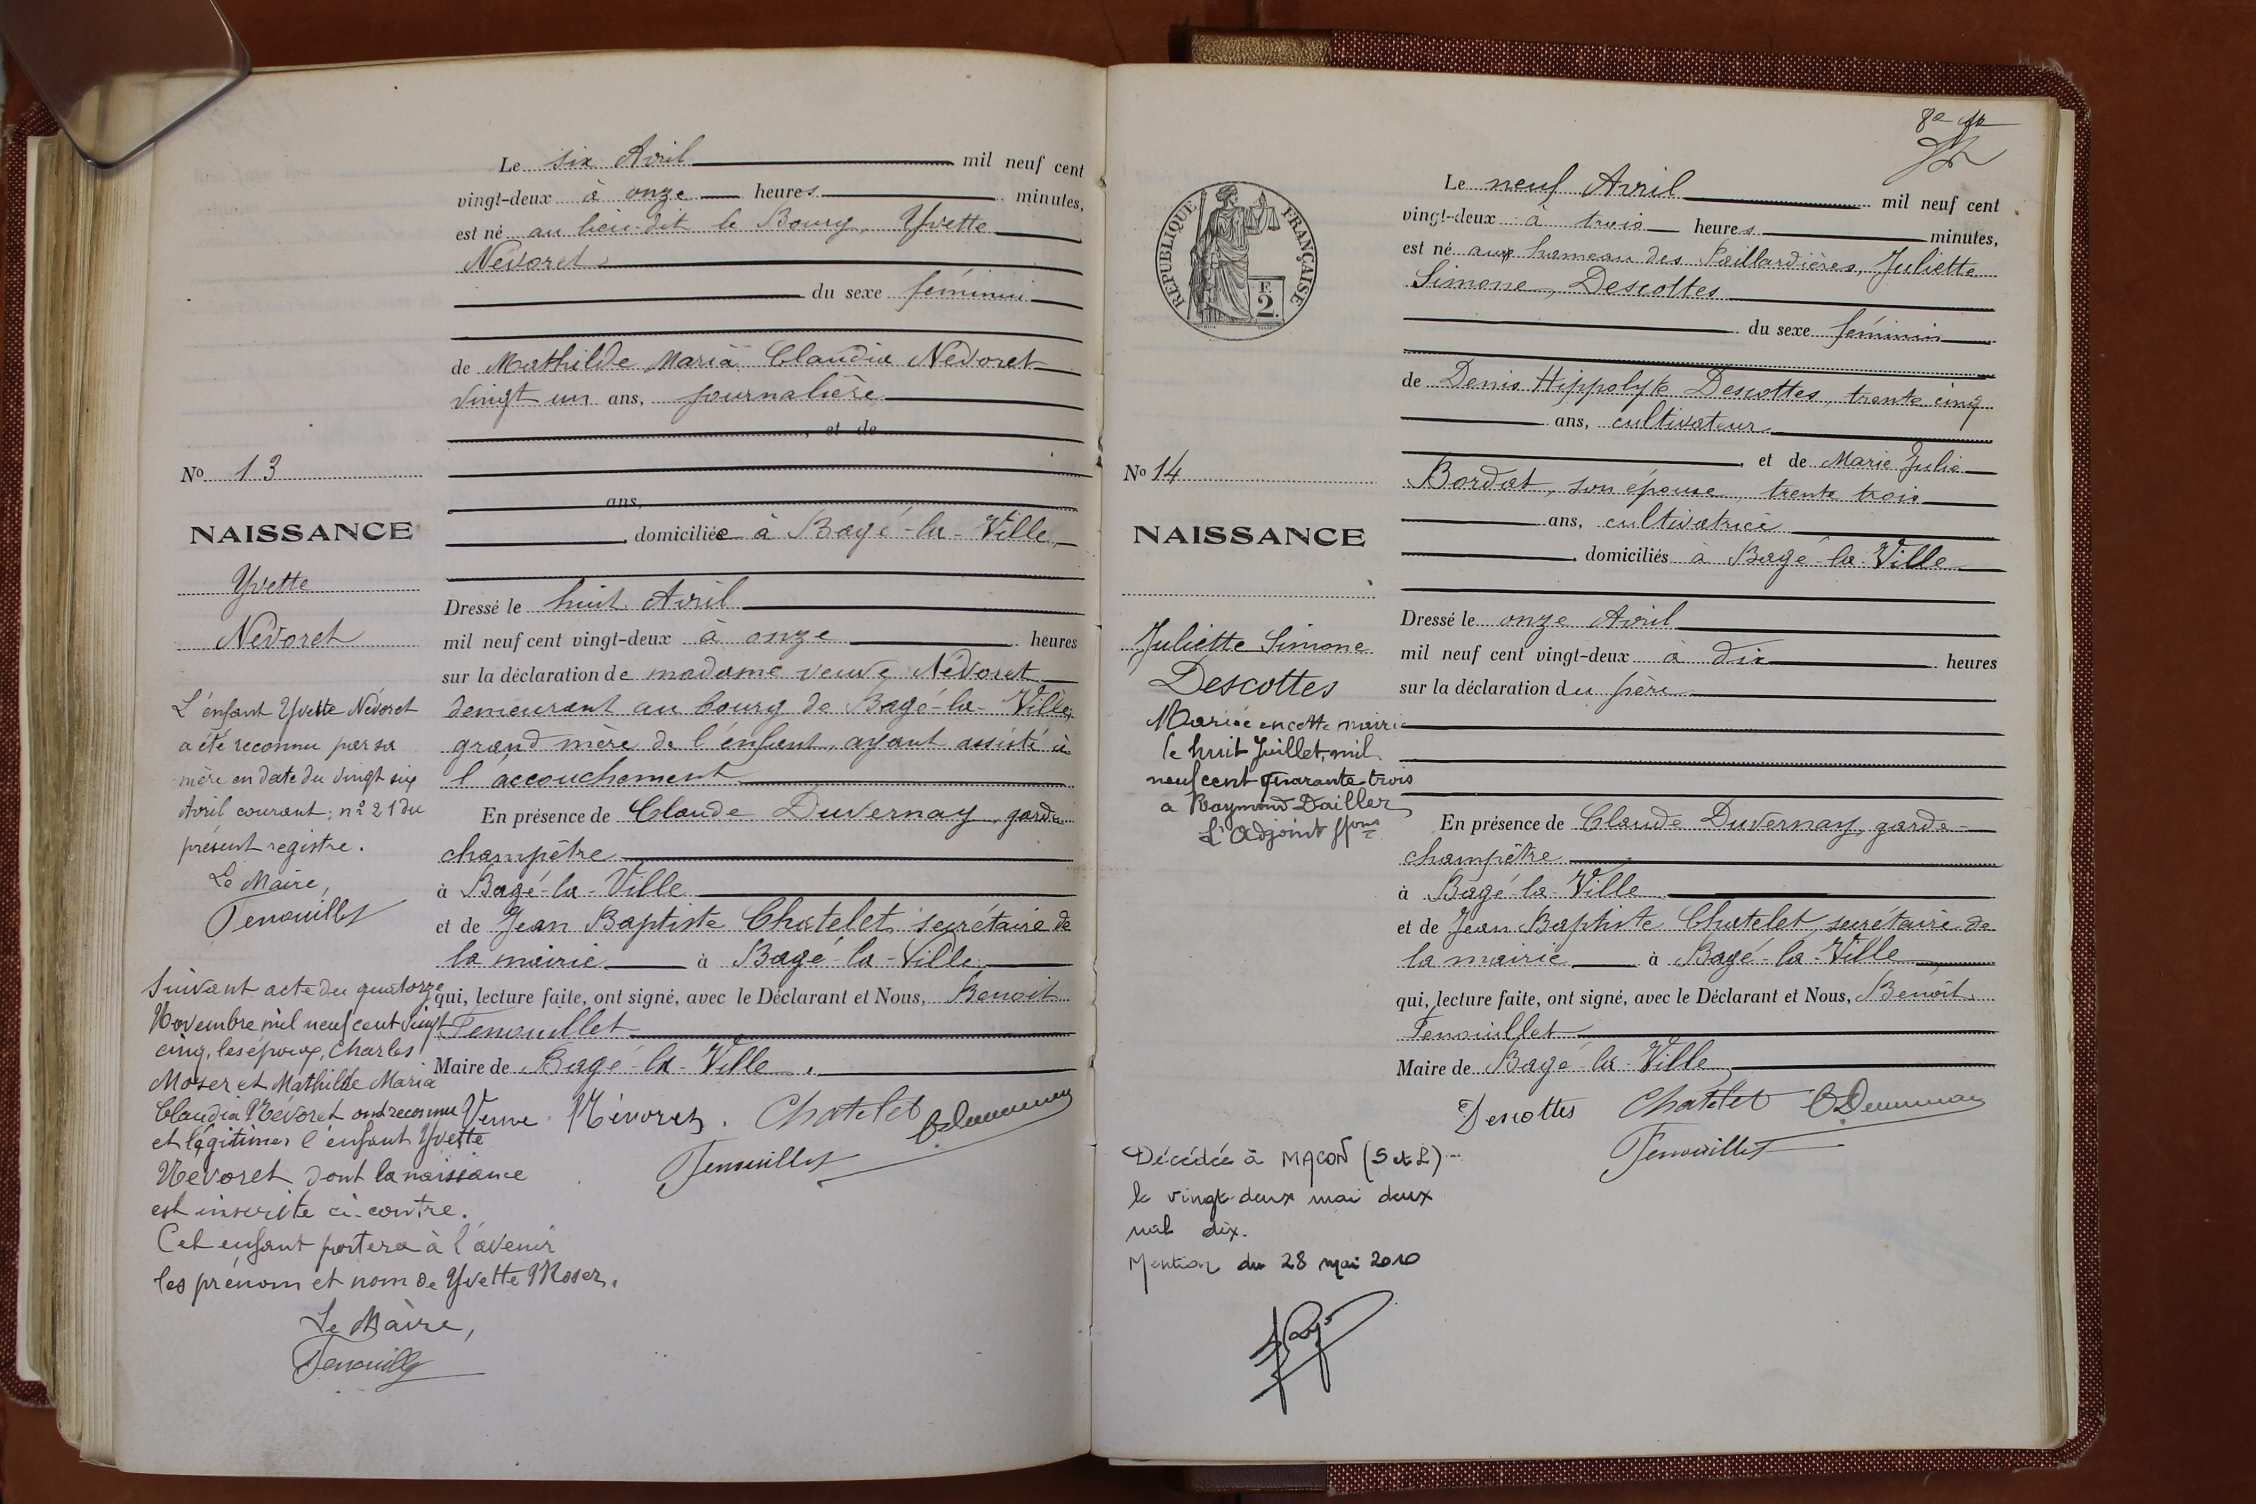 Le six Avril mil neuf cent
vingt-deux à onze heures minutes,
est né au lieu-dit le Bourg, Yvette
Névoret
du sexe féminin
de Mathilde Maria Claudia Névoret
vingt un ans, journalière
, et de
ans,
domiciliée à Bagé-la-Ville,
Dressé le huit Avril
mil neuf cent vingt-deux à onze heures
sur la déclaration de madame veuve Névoret
demeurant au bourg de Bagé-la-Ville,
grand mère de l'enfant, ayant assisté à
l'accouchement
En présence de Claude Duvernay, garde
champêtre
à Bagé-la-Ville
et de Jean Baptiste Chatelet, secrétaire de
la mairie à Bagé-la-Ville
qui, lecture faite, ont signé, avec le Déclarant et Nous, Benoit
Fenouillet
Maire de Bagé-la-Ville.
Veuve Névoret. Chatelet C. Duvernay
Fenouillet
No 13
NAISSANCE
Yvette
Névoret
L'enfant Yvette Névoret
a été reconnu par sa
mère en date du vingt six
Avril courant; n° 21 du
présent registre.
Le Maire,
Fenouillet
Suivant acte du quatorze
Novembre mil neuf cent vingt
cinq, les époux, Charles
Moser et Mathilde Maria
Claudia Névoret ont reconnu
et légitimer l'enfant Yvette
Névoret dont la naissance
est inscrite ci-contre.
Cet enfant portera à l'avenir
les prénom et nom de Yvette Moser.
Le Maire,
Fenouillet
REPUBLIQUE FRANÇAISE
F.
2.
Le neuf Avril mil neuf cent
vingt-deux à trois heures minutes,
est né aux hameau des Paillardières, Juliette
Simone, Descottes
du sexe féminin
de Denis Hippolyte Descottes, trente cinq
ans, cultivateur
, et de Marie Julie
Bordat, son épouse, trente trois
ans, cultivatrice
, domiciliés à Bagé-la-Ville
Dressé le onze Avril
mil neuf cent vingt-deux à dix heures
sur la déclaration du père
En présence de Claude Duvernay, garde
champêtre
à Bagé-la-Ville
et de Jean Baptiste Chatelet, secrétaire de
la mairie à Bagé-la-Ville
qui, lecture faite, ont signé, avec le Déclarant et Nous, Benoit
Fenouillet
Maire de Bagé-la-Ville
Descottes Chatelet C. Duvernay
Fenouillet
No 14
NAISSANCE
Juliette Simone
Descottes
Mariée en cette mairie
le huit Juillet, mil
neuf cent quarante trois
a Raymond Dailler
L'Adjoint ffons
Décédée à MACON (S et L)
le vingt deux mai deux
mil dix.
Mention du 28 mai 2010